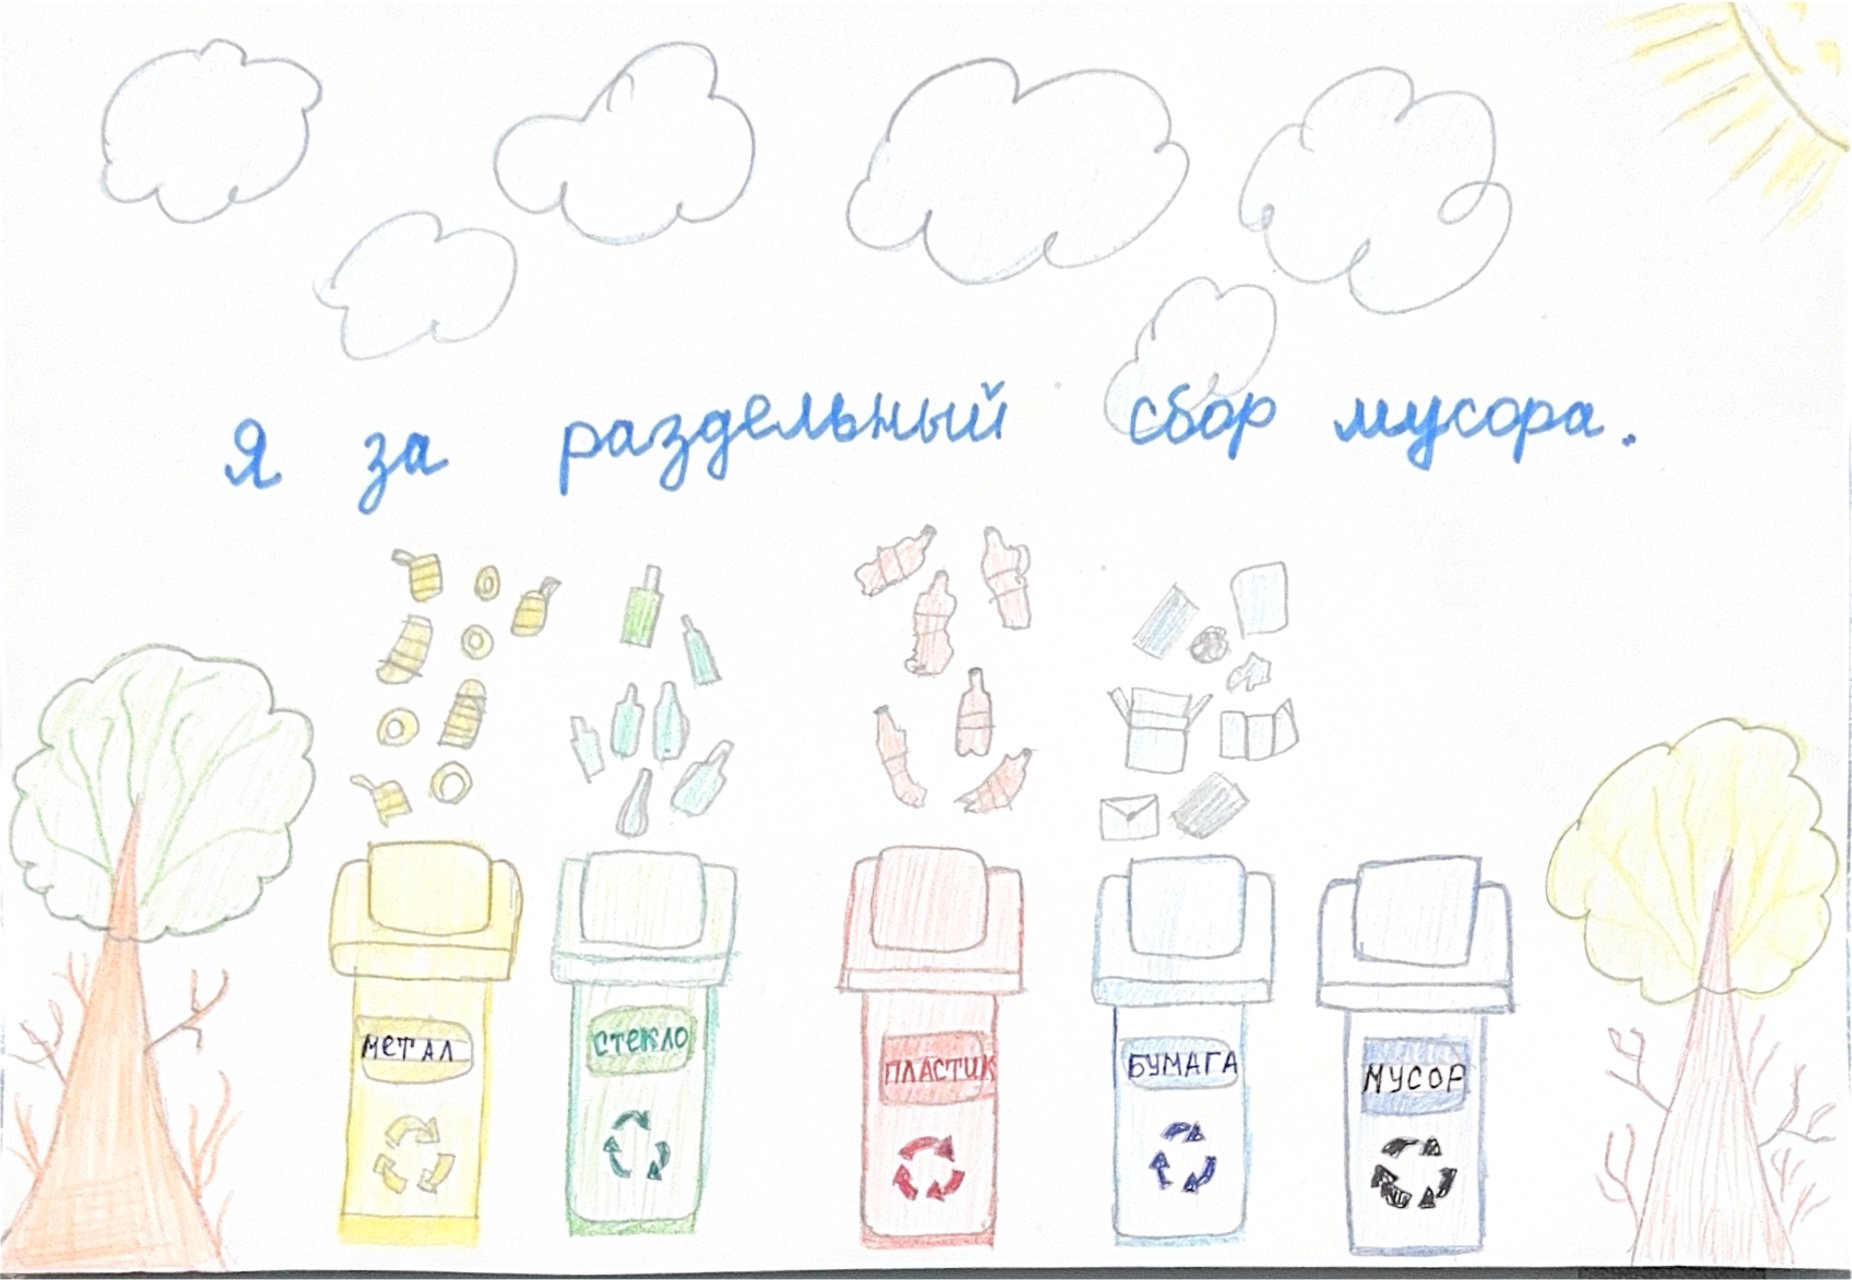 Я за раздельный сбор мусора.
МЕТАЛ
СТЕКЛО
ПЛАСТИК
БУМАГА
МУСОР